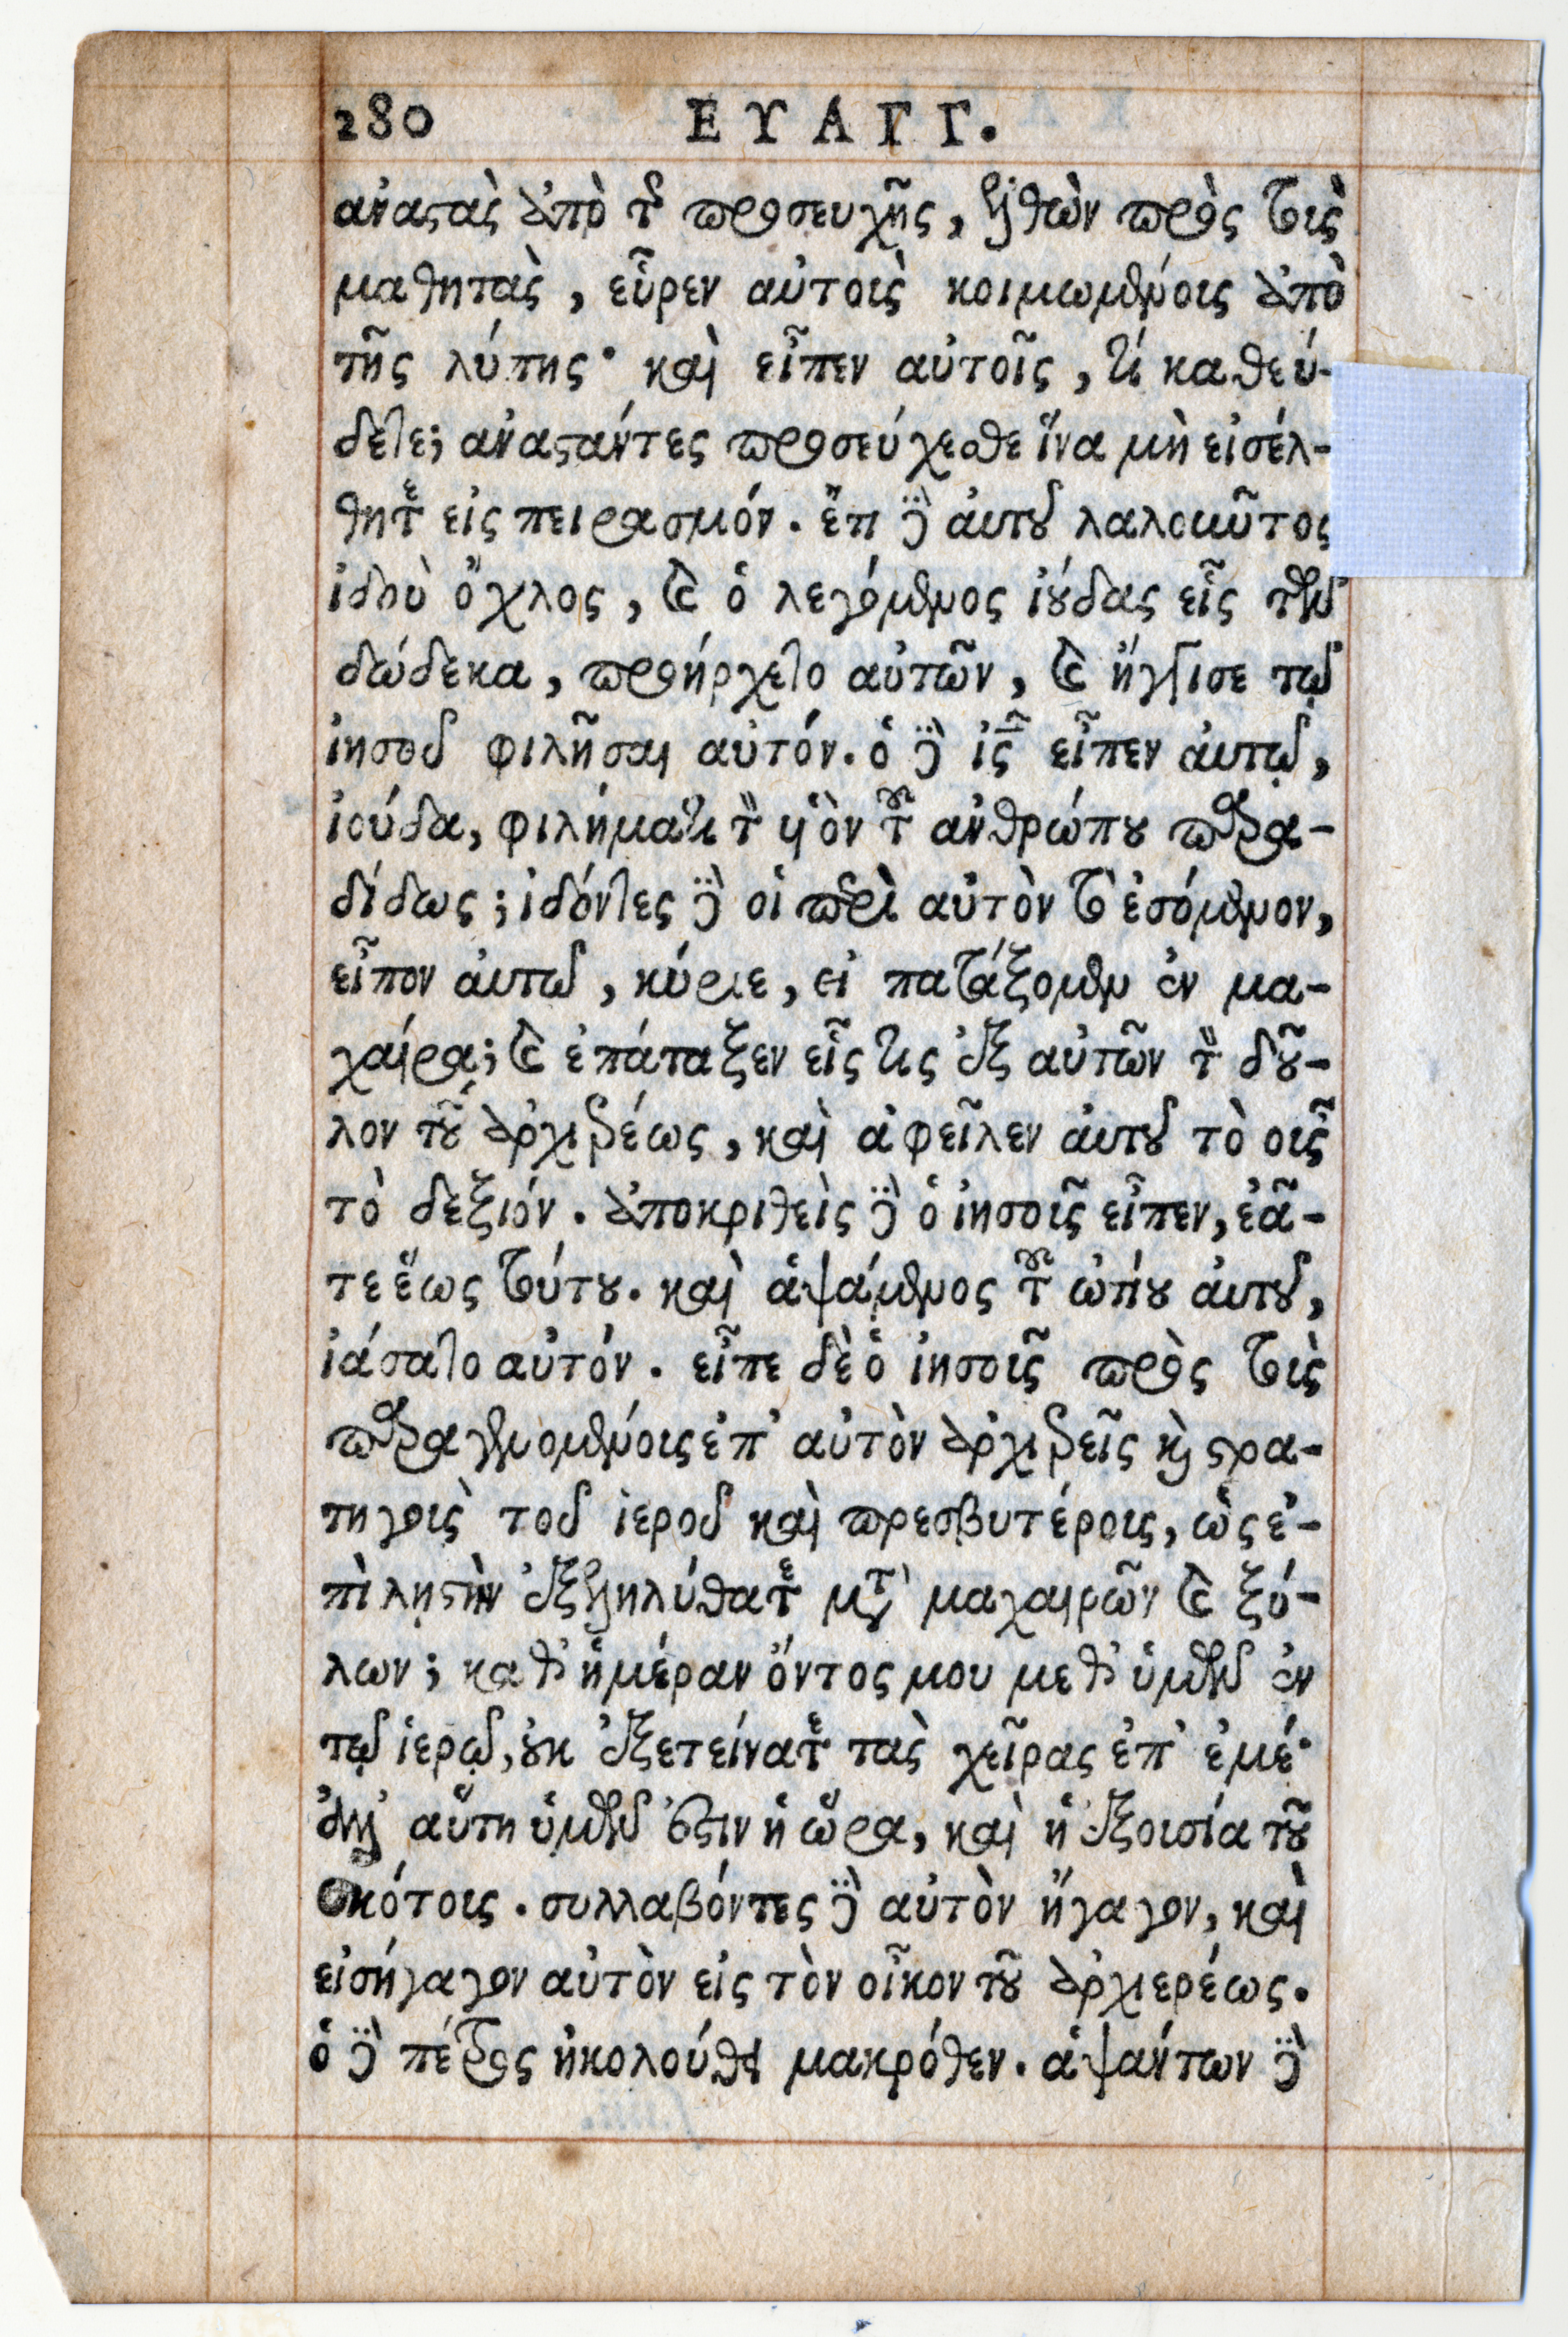 280 ΕΥΑΓΓ.
ἀναστὰς ἀπὸ τῆς προσευχῆς, ἐλθὼν πρὸς τοὺς
μαθητὰς, εὗρεν αὐτοὺς κοιμωμένους ἀπὸ
τῆς λύπης· καὶ εἶπεν αὐτοῖς, τί καθεύ-
δετε; ἀναστάντες προσεύχεσθε ἵνα μὴ εἰσέλ-
θητε εἰς πειρασμόν. ἔτι δὲ αὐτοῦ λαλοῦντος
ἰδοὺ ὄχλος, καὶ ὁ λεγόμενος ἰούδας εἷς τῶν
δώδεκα, προήρχετο αὐτῶν, καὶ ἤγγισε τῷ
ἰησοῦ φιλῆσαι αὐτόν. ὁ δὲ ἰς εἶπεν αὐτῷ,
ἰούδα, φιλήματι τὸν υἱὸν τοῦ ἀνθρώπου παρα-
δίδως; ἰδόντες δὲ οἱ περὶ αὐτὸν τὸ ἐσόμενον,
εἶπον αὐτῷ, κύριε, εἰ πατάξομεν ἐν μα-
χαίρᾳ; καὶ ἐπάταξεν εἷς τις ἐξ αὐτῶν τὸν δοῦ-
λον τοῦ ἀρχιερέως, καὶ ἀφεῖλεν αὐτοῦ τὸ οὖς
τὸ δεξιόν. ἀποκριθεὶς δὲ ὁ ἰησοῦς εἶπεν, ἐᾶ-
τε ἕως τούτου. καὶ ἁψάμενος τοῦ ὠτίου αὐτοῦ,
ἰάσατο αὐτόν. εἶπε δὲ ὁ ἰησοῦς πρὸς τοὺς
παραγενομένους ἐπ' αὐτὸν ἀρχιερεῖς καὶ στρα-
τηγοὺς τοῦ ἱεροῦ καὶ πρεσβυτέρους, ὡς ἐ-
πὶ λῃστὴν ἐξεληλύθατε μετὰ μαχαιρῶν καὶ ξύ-
λων; καθ' ἡμέραν ὄντος μου μεθ' ὑμῶν ἐν
τῷ ἱερῷ, οὐκ ἐξετείνατε τὰς χεῖρας ἐπ' ἐμέ·
ἀλλ' αὕτη ὑμῶν ἐστιν ἡ ὥρα, καὶ ἡ ἐξουσία τοῦ
σκότους. συλλαβόντες δὲ αὐτὸν ἤγαγον, καὶ
εἰσήγαγον αὐτὸν εἰς τὸν οἶκον τοῦ ἀρχιερέως.
ὁ δὲ πέτρος ἠκολούθει μακρόθεν. ἁψάντων δὲ